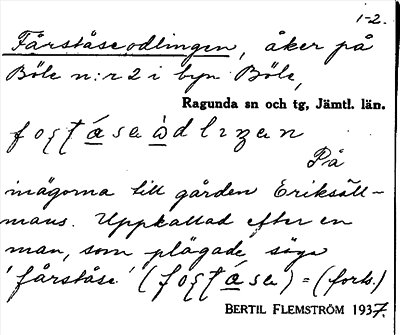 1-2.
Fårståseodlingen, åker på
Böle n:r 2 i byn Böle,
Ragunda sn och tg, Jämtl. län.
På
inägorna till gården Eriksäll-
maus. Uppkallad efter en
man, som plägade säga
'fårståse' ( ) = (forts.)
BERTIL FLEMSTRÖM 1937.